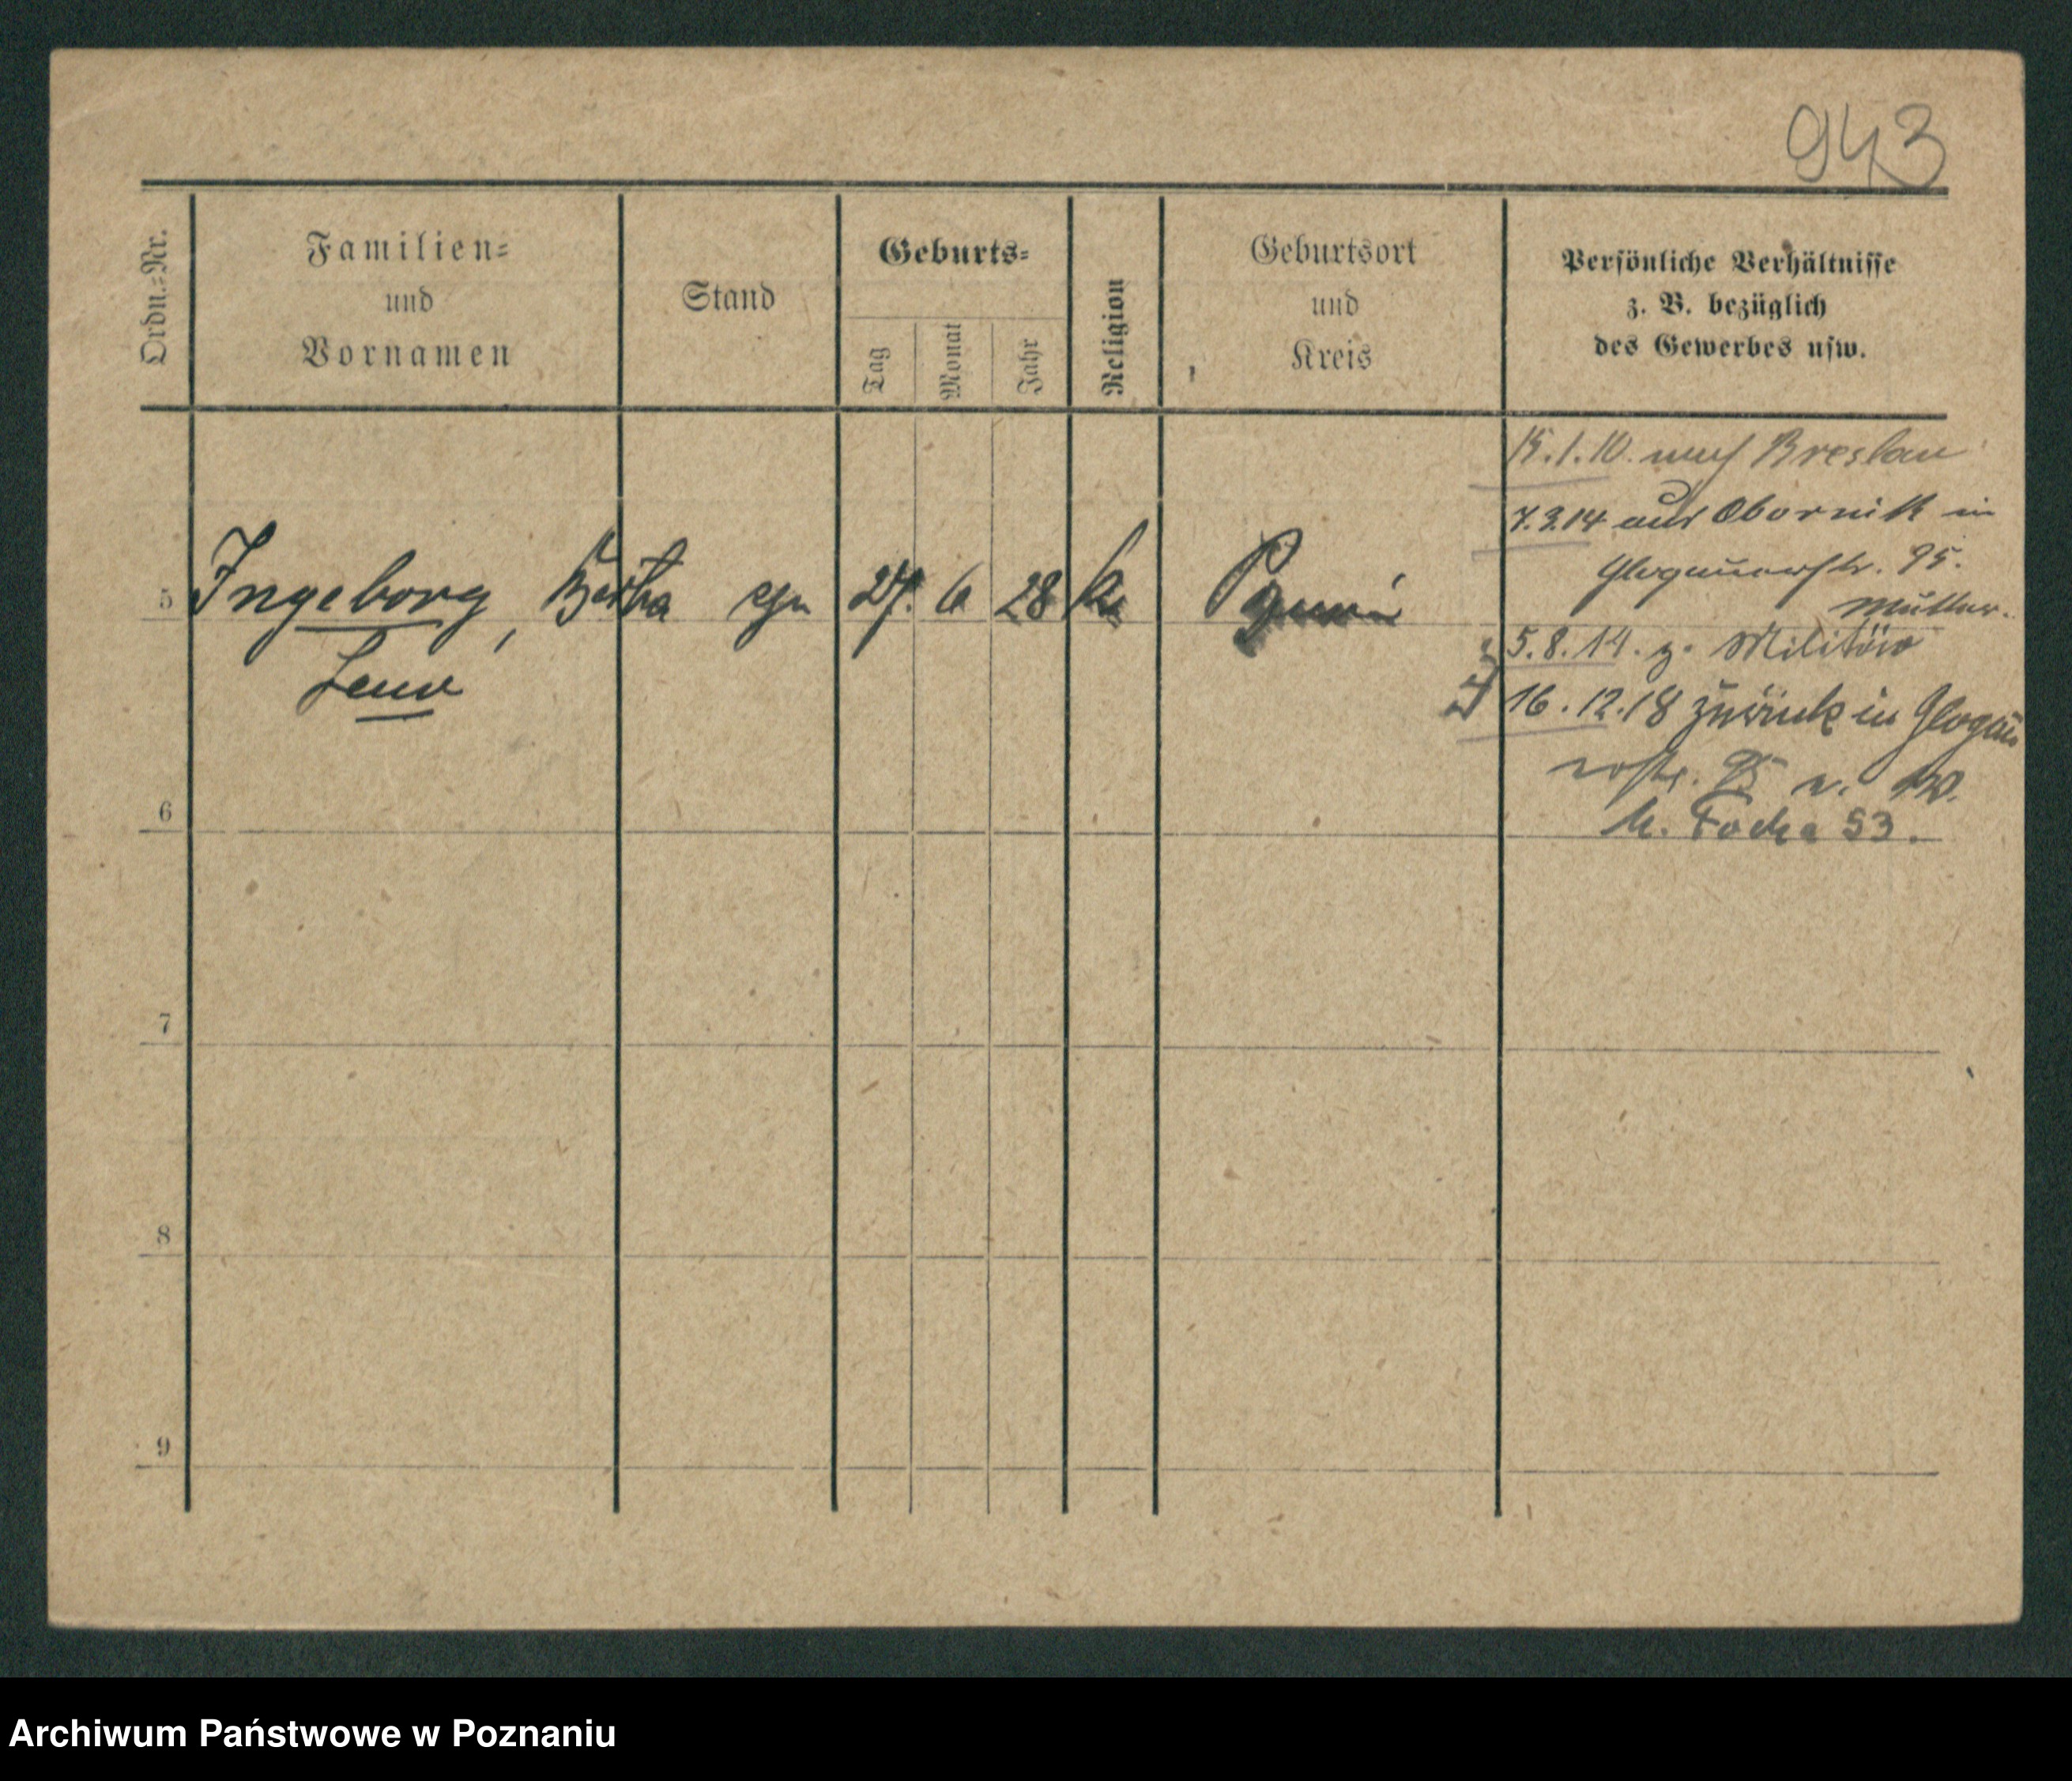 943
Ordn.=Nr.
Familien=
und
Vornamen
Stand
Geburts=
Tag
Monat
Jahr
Religion
Geburtsort
und
Kreis
Persönliche Verhältnisse
z. B. bezüglich
des Gewerbes usw.
15.1.10. nach Breslau
7.3.14 aus Obornik in
Glogauerstr. 95.
Mutter.
5 Ingeborg, Berta 27. 6 28 k
5.8.14. z. Militär
16.12.18 zurück in Glogau
erstr. 95 n. W.
M. Focha 53.
6
7
8
9
Archiwum Państwowe w Poznaniu